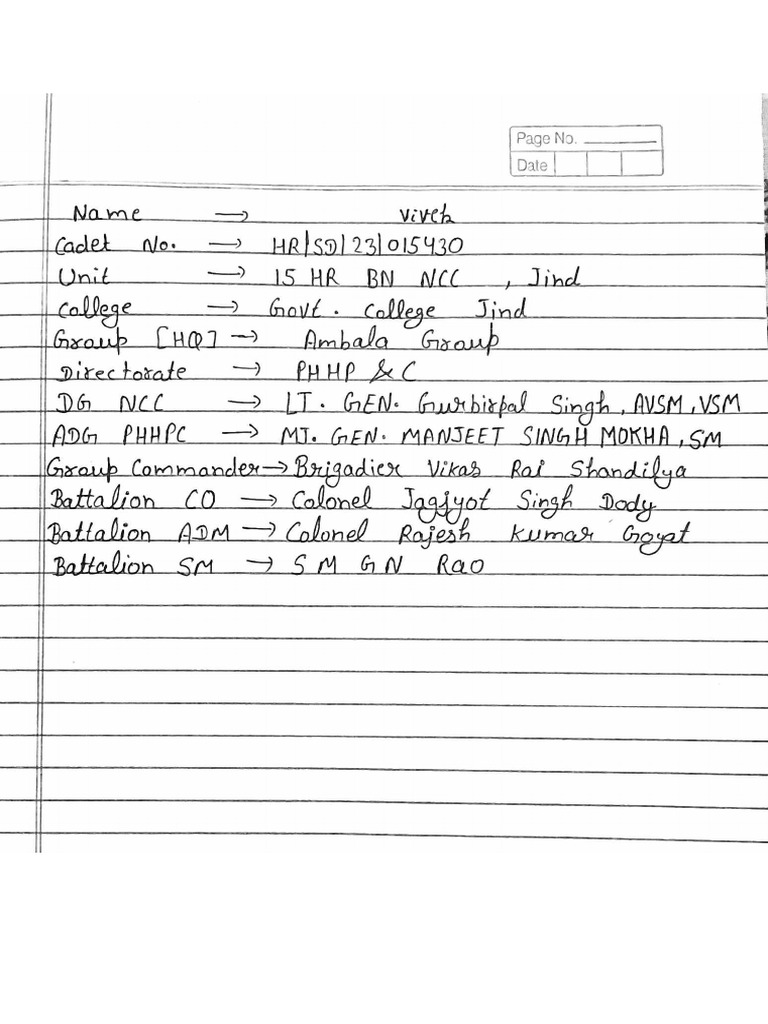 Page No.
Date
Name → Vivek
Cadet No. → HR/SD/23/015430
Unit → 15 HR BN NCC , Jind
College → Govt. College Jind
Group [HQ] → Ambala Group
Directorate → PHHP & C
DG NCC → LT. GEN. Gurbirpal Singh, AVSM, VSM
ADG PHHPC → MJ. GEN. MANJEET SINGH MOKHA, SM
Group Commander → Brigadier Vikas Rai Shandilya
Battalion CO → Colonel Jagjyot Singh Dody
Battalion ADM → Colonel Rajesh Kumar Goyat
Battalion SM → SM GN Rao